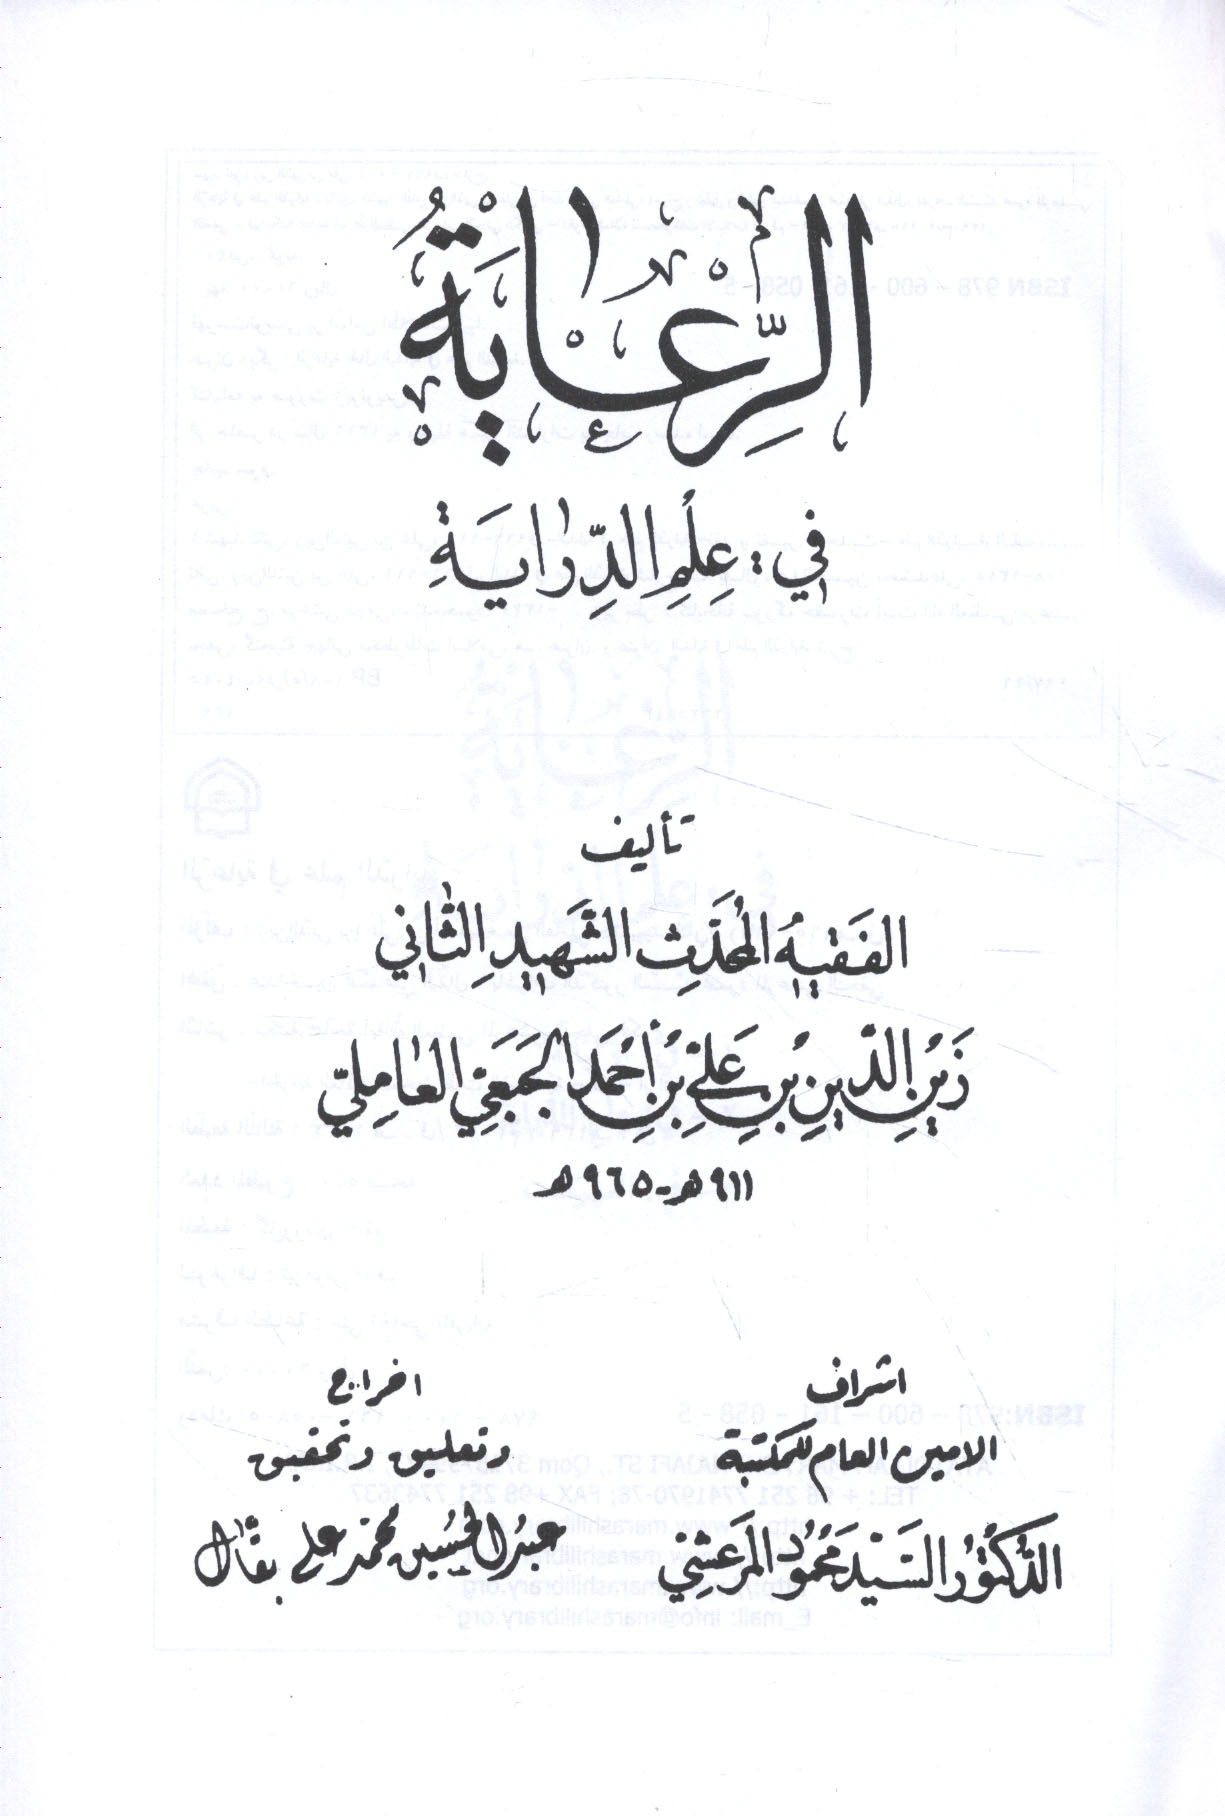 الرِّعَايَةُ
في: عِلْمِ الدِّرَايَةِ
تأليف
الفَقيهُ المُحَدِّثِ الشَّهيدِ الثَّاني
زَيْنِ الدِّينِ بْنِ عَلِيّ بْنِ أَحْمَدَ الجَبَعِيّ العَامِلِيّ
٩١١هـ-٩٦٥هـ
اشراف
الامين العام للمكتبة
الدُّكتُور السَّيِّد مَحمُود المَرعَشِي
اخراج
وتعليق وتحقيق
عبدُ الحُسَين محمّد علي بقّال